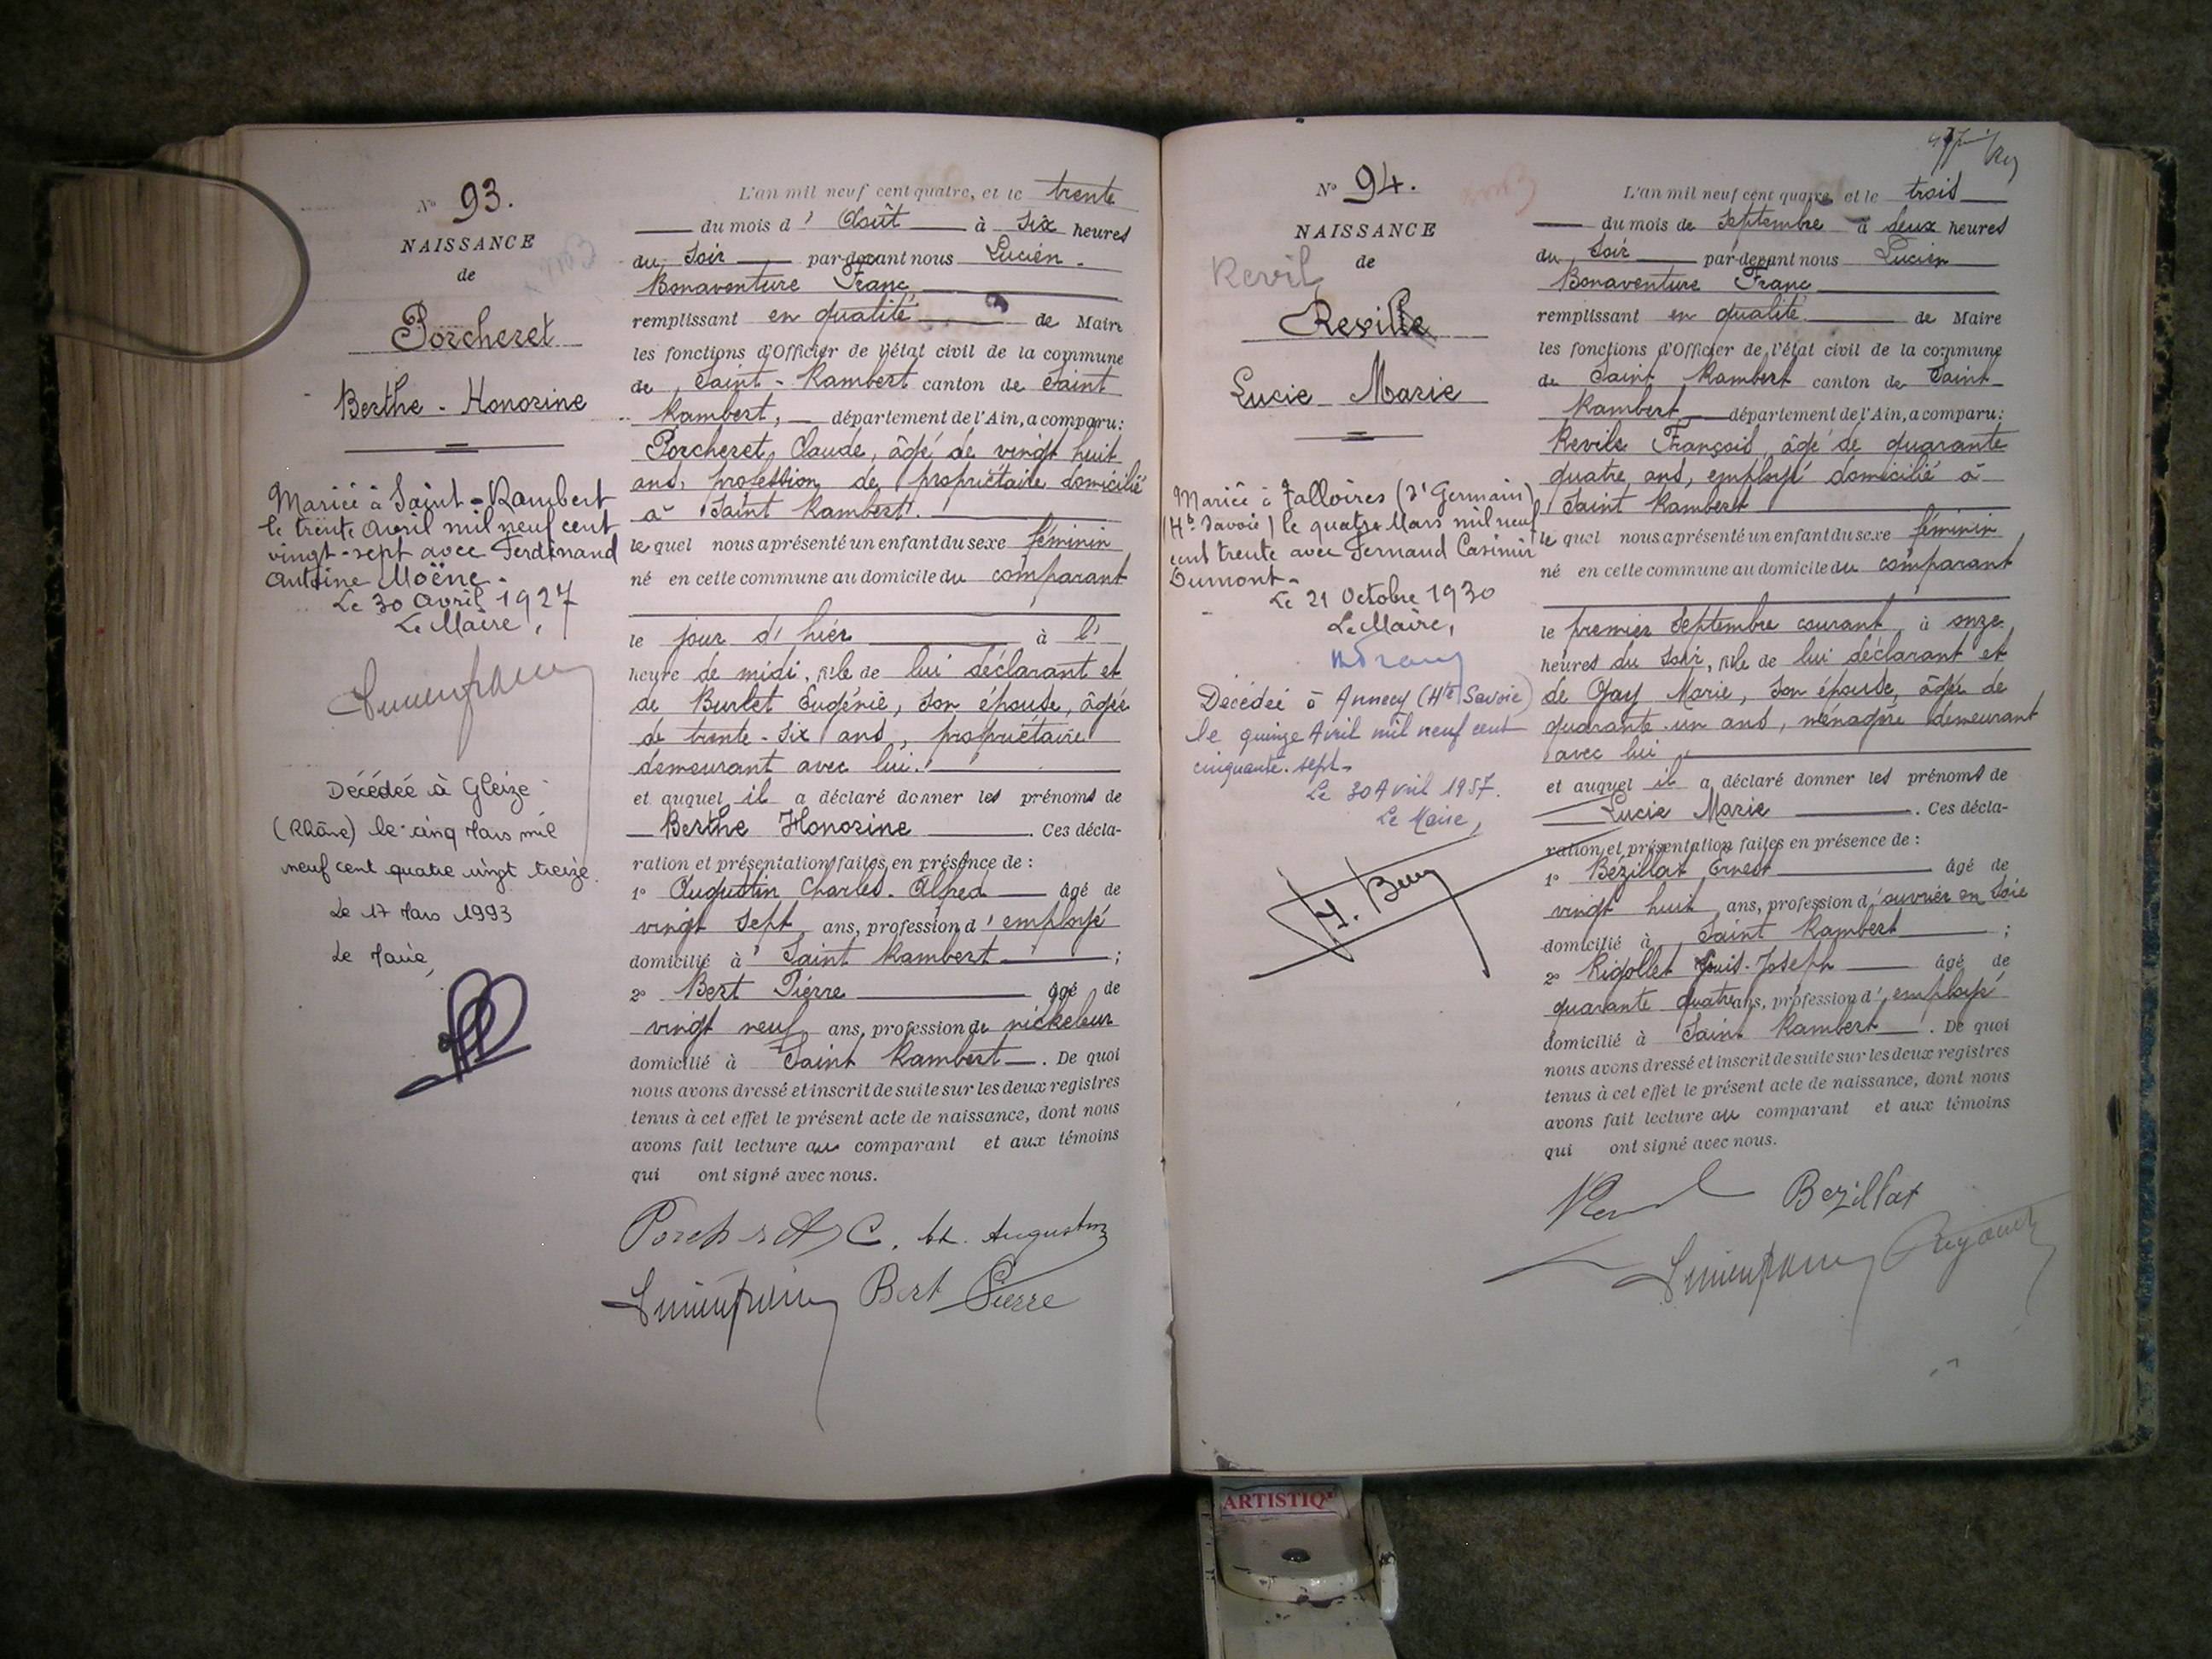 N° 93.
NAISSANCE
de
Porcheret
Berthe - Honorine
Mariée à Saint-Rambert
le trente avril mil neuf cent
vingt-sept avec Ferdinand
Antoine Moëne.
Le 30 Avril 1927
Le Maire,
Décédée à Gleizé
(Rhône) le cinq Mars mil
neuf cent quatre vingt treize.
Le 17 Mars 1993
Le Maire,
L'an mil neuf cent quatre, et le trente
du mois d' Août à six heures
du soir par-devant nous Lucien-
Bonaventure Franc
remplissant en qualité de Maire
les fonctions d'Officier de l'état civil de la commune
de Saint-Rambert canton de Saint
Rambert, département de l'Ain, a comparu:
Porcheret, Claude, âgé de vingt huit
ans, profession de propriétaire domicilié
à Saint Rambert.
lequel nous a présenté un enfant du sexe féminin
né en cette commune au domicile du comparant
le jour d'hier à l'
heure de midi, fille de lui déclarant et
de Burlet Eugénie, son épouse, âgée
de trente-six ans, propriétaire
demeurant avec lui.
et auquel il a déclaré donner les prénoms de
Berthe Honorine. Ces décla-
ration et présentation faites en présence de :
1° Augustin Charles-Alfred âgé de
vingt sept ans, profession d'employé
domicilié à Saint Rambert ;
2° Bert Pierre âgé de
vingt neuf ans, profession de nickeleur
domicilié à Saint Rambert. De quoi
nous avons dressé et inscrit de suite sur les deux registres
tenus à cet effet le présent acte de naissance, dont nous
avons fait lecture au comparant et aux témoins
qui ont signé avec nous.
Porcheret C. Augustin
Lucien Franc Bert Pierre
N° 94.
NAISSANCE
de
Revil
Reville
Lucie Marie
Mariée à Talloires (St Germain)
(Hte Savoie) le quatre Mars mil neuf
cent trente avec Fernand Casimir
Dumont.
Le 21 Octobre 1930
Le Maire,
Décédée à Annecy (Hte Savoie)
le quinze Avril mil neuf cent
cinquante-sept.
Le 30 Avril 1957.
Le Maire,
L'an mil neuf cent quatre, et le trois
du mois de Septembre à deux heures
du soir par-devant nous Lucien
Bonaventure Franc
remplissant en qualité de Maire
les fonctions d'Officier de l'état civil de la commune
de Saint Rambert canton de Saint
Rambert département de l'Ain, a comparu:
Revile François, âgé de quarante
quatre ans, employé domicilié à
Saint Rambert
lequel nous a présenté un enfant du sexe féminin
né en cette commune au domicile du comparant
le premier Septembre courant à onze
heures du soir, fille de lui déclarant et
de Gay Marie, son épouse, âgée de
quarante-un ans, ménagère demeurant
avec lui
et auquel il a déclaré donner les prénoms de
Lucie Marie. Ces décla-
ration et présentation faites en présence de :
1° Bézillat Ernest âgé de
vingt huit ans, profession d'ouvrier en soie
domicilié à Saint Rambert ;
2° Rigollet Louis-Joseph âgé de
quarante quatre ans, profession d'employé
domicilié à Saint Rambert. De quoi
nous avons dressé et inscrit de suite sur les deux registres
tenus à cet effet le présent acte de naissance, dont nous
avons fait lecture au comparant et aux témoins
qui ont signé avec nous.
Revil Bezillat
Lucien Franc
ARTISTIQ